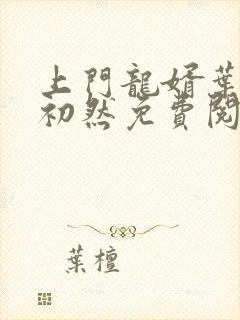 上門龍婿葉
初然免費閱
葉檀